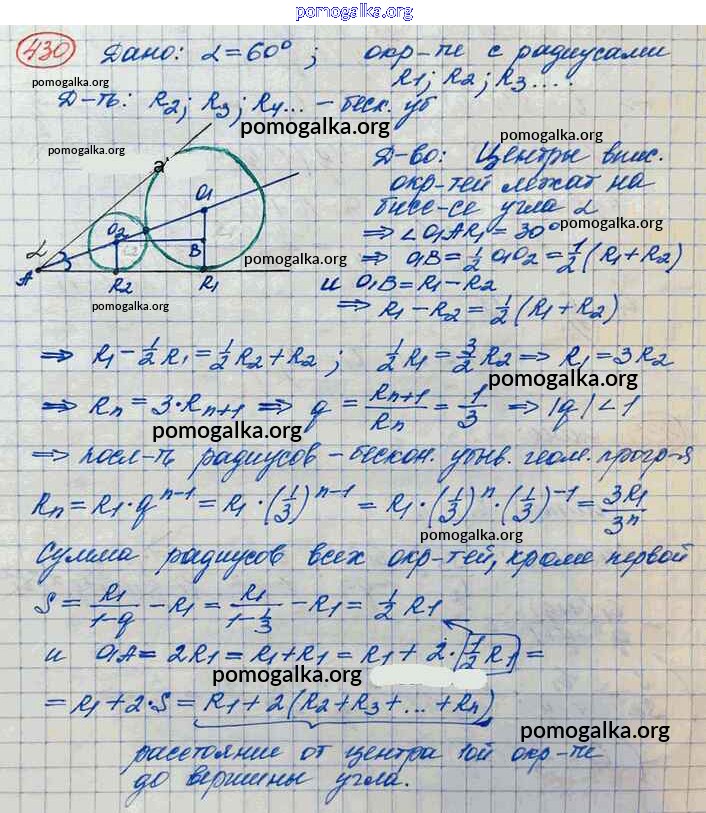 pomogalka.org
430 Дано: α = 60°; окр-ти с радиусами
R1; R2; R3 ....
pomogalka.org
Д-ть: R2; R3; R4... – беск. уб
pomogalka.org
pomogalka.org
pomogalka.org
a
Д-во: Центры впис.
окр-тей лежат на
бисс-се угла α
⇒ ∠O1AR1 = 30°
pomogalka.org
⇒ O1B = 1/2 O1O2 = 1/2 (R1 + R2)
pomogalka.org
и O1B = R1 - R2
⇒ R1 - R2 = 1/2 (R1 + R2)
α
A
O2
O1
B
R2
R1
⇒ R1 - 1/2 R1 = 1/2 R2 + R2; 1/2 R1 = 3/2 R2 ⇒ R1 = 3R2
pomogalka.org
⇒ Rn = 3·Rn+1 ⇒ q = Rn+1/Rn = 1/3 ⇒ |q| < 1
pomogalka.org
⇒ посл-ть радиусов – бескон. убыв. геом. прогр-я
Rn = R1·q^(n-1) = R1·(1/3)^(n-1) = R1·(1/3)^n·(1/3)^(-1) = 3R1/3^n
pomogalka.org
Сумма радиусов всех окр-тей, кроме первой
S = R1/(1-q) - R1 = R1/(1-1/3) - R1 = 1/2 R1
и O1A = 2R1 = R1 + R1 = R1 + 2·1/2 R1 =
pomogalka.org
= R1 + 2·S = R1 + 2(R2 + R3 + ... + Rn)
pomogalka.org
расстояние от центра 1ой окр-ти
до вершины угла.